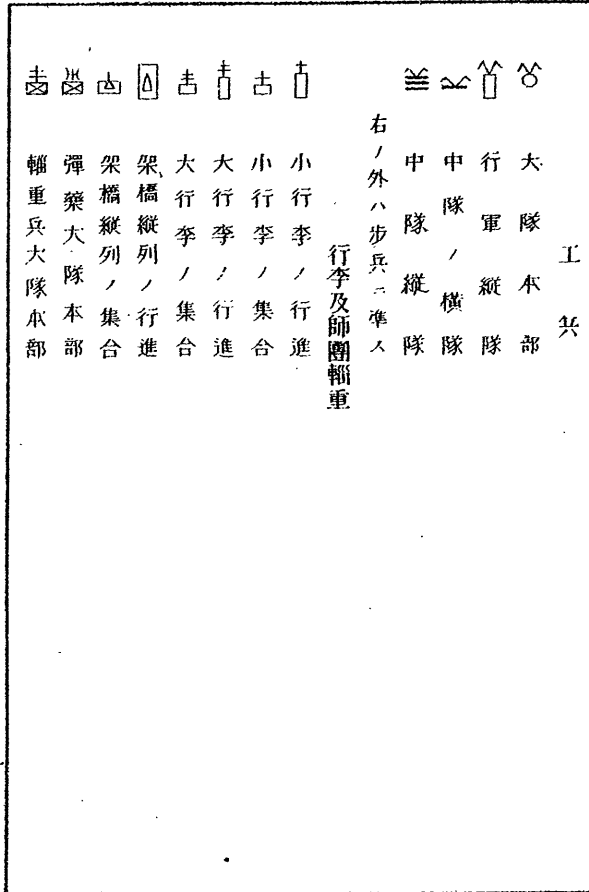 工兵
大隊本部
行軍縦隊
中隊ノ横隊
中隊縦隊
右ノ外ハ歩兵ニ準ス
行李及師團輜重
小行李ノ行進
小行李ノ集合
大行李ノ行進
大行李ノ集合
架橋縦列ノ行進
架橋縦列ノ集合
彈藥大隊本部
輜重兵大隊本部